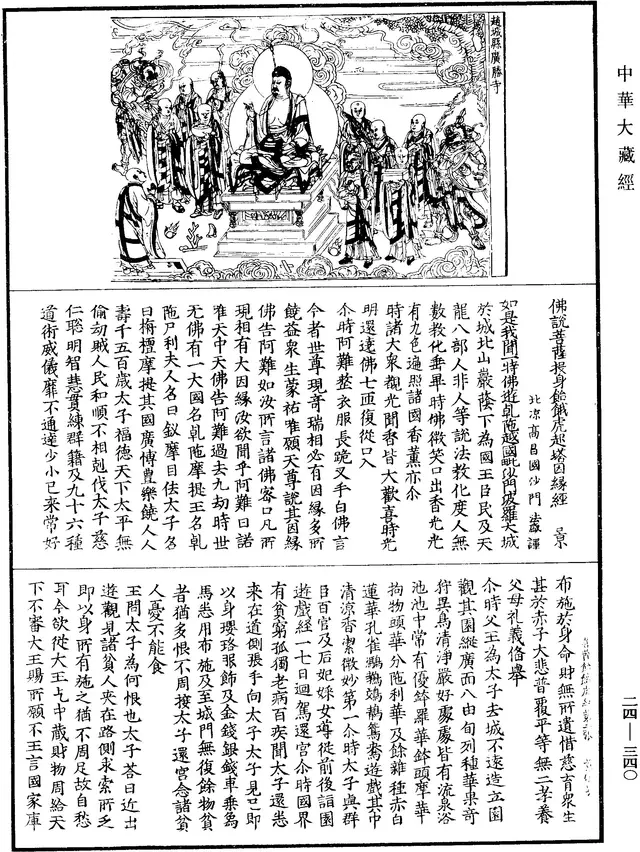 中華大藏經
趙城縣廣勝寺
佛說菩薩投身飴餓虎起塔因緣經 景
北涼高昌國沙門 法盛 譯
如是我聞一時佛遊乹陁越國毗沙門波羅大城
於城北山巖蔭下為國王臣民及天
龍八部人非人等說法教化度人無
數教化垂畢時佛微笑口出香光光
有九色遍照諸國香薰亦尒
時諸大衆覩光聞香皆大歡喜時光
明還遶佛七匝復從口入
尒時阿難整衣服長跪叉手白佛言
今者世尊現奇瑞相必有因緣多所
饒益衆生蒙祐唯願天尊說其因緣
佛告阿難如汝所言諸佛密口凡所
現相有大因緣汝欲聞乎阿難曰諾
唯天中天佛告阿難過去九劫時世
无佛有一大國名乹陁摩提王名乹
陁尸利夫人名曰釵摩目佉太子名
曰栴檀摩提其國廣博豊樂饒人人
壽千五百歲太子福德天下太平無
偷劫賊人民和順不相剋伐太子慈
仁聡明智慧貫練群籍及九十六種
道術威儀靡不通達少小已來常好
布施於身命財無所遺惜慈育衆生
甚於赤子大悲普覆平等無二孝養
父母礼義俻舉
尒時父王為太子去城不遠造立園
觀其園縱廣面八由旬列種華果奇
狩異鳥清淨嚴好處處皆有流泉浴
池池中常有優鉢羅華鉢頭摩華
拘物頭華分陁利華及餘雜種赤白
蓮華孔雀鸚鵡鵁鶄鴛鴦遊戲其中
清凉香潔微妙第一尒時太子與群
臣百官及后妃婇女導從前後詣園
遊戲經一七日迴駕還宮尒時國界
有貧窮孤獨老病百疾聞太子還悉
來在道側張手向太子太子見已即
以身瓔珞服飾及金錢銀錢車乗象
馬悉用布施及至城門無復餘物貧
者猶多恨不周接太子還宮念諸貧
人憂不能食
王問太子為何恨也太子荅曰近出
遊觀見諸貧人夾在路側求索所乏
即以身所有施之猶不周足故自愁
耳今欲從大王乞中藏財物周給天
下不審大王賜所願不王言國家庫
二四—三四〇